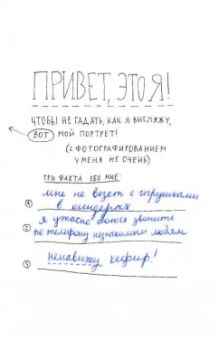 ПРИВЕТ, ЭТО Я!
ЧТОБЫ НЕ ГАДАТЬ, КАК Я ВЫГЛЯЖУ,
ВОТ МОЙ ПОРТРЕТ!
(С ФОТОГРАФИРОВАНИЕМ
У МЕНЯ НЕ ОЧЕНЬ)
ТРИ ФАКТА ОБО МНЕ:
мне не везет с игрушками
① в киндерах
я ужасно боюсь звонить
② по телефону незнакомым людям
ненавижу кефир!
③